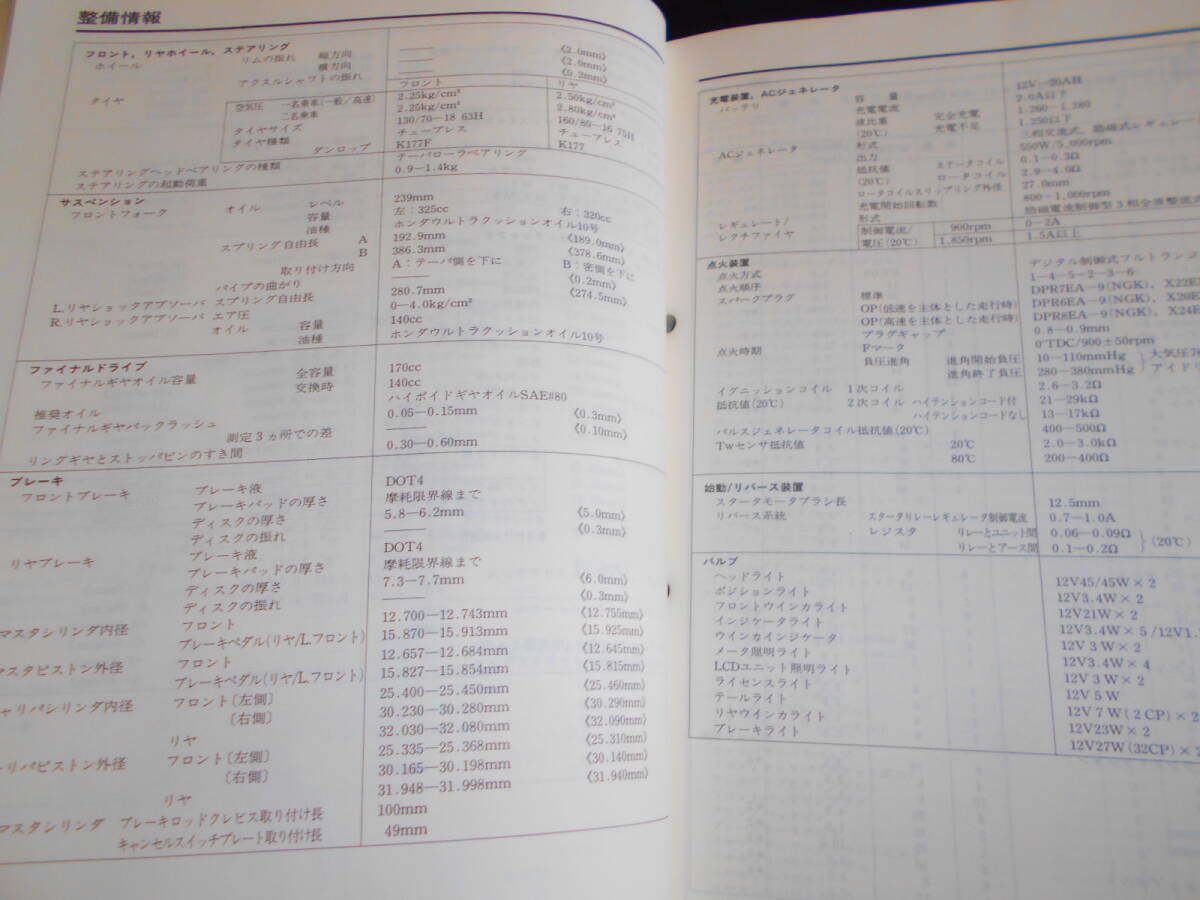 整備情報
フロント，リヤホイール，ステアリング
ホイール リムの振れ 縦方向 —— 《2.0mm》
横方向 —— 《2.0mm》
アクスルシャフトの振れ —— 《0.2mm》
タイヤ フロント リヤ
空気圧 一名乗車(一般/高速) 2.25kg/cm² 2.50kg/cm²
二名乗車 2.25kg/cm² 2.80kg/cm²
タイヤサイズ 130/70—18 63H 160/80—16 75H
タイヤ種類 チューブレス チューブレス
ダンロップ K177F K177
ステアリングヘッドベアリングの種類 テーパローラベアリング
ステアリングの起動荷重 0.9—1.4kg
サスペンション
フロントフォーク オイル レベル 239mm
容量 左：325cc 右：320cc
油種 ホンダウルトラクッションオイル10号
スプリング自由長 A 192.9mm 《189.0mm》
B 386.3mm 《378.6mm》
取り付け方向 A：テーパ側を下に B：密側を下に
パイプの曲がり —— 《0.2mm》
L.リヤショックアブソーバ スプリング自由長 280.7mm 《274.5mm》
R.リヤショックアブソーバ エア圧 0—4.0kg/cm²
オイル 容量 140cc
油種 ホンダウルトラクッションオイル10号
ファイナルドライブ
ファイナルギヤオイル容量 全容量 170cc
交換時 140cc
推奨オイル ハイポイドギヤオイルSAE#80
ファイナルギヤバックラッシュ 0.05—0.15mm 《0.3mm》
測定3ヵ所での差 —— 《0.10mm》
リングギヤとストッパピンのすき間 0.30—0.60mm
ブレーキ
フロントブレーキ ブレーキ液 DOT4
ブレーキパッドの厚さ 摩耗限界線まで
ディスクの厚さ 5.8—6.2mm 《5.0mm》
ディスクの振れ —— 《0.3mm》
リヤブレーキ ブレーキ液 DOT4
ブレーキパッドの厚さ 摩耗限界線まで
ディスクの厚さ 7.3—7.7mm 《6.0mm》
ディスクの振れ —— 《0.3mm》
マスタシリンダ内径 フロント 12.700—12.743mm 《12.755mm》
ブレーキペダル(リヤ/L.フロント) 15.870—15.913mm 《15.925mm》
マスタピストン外径 フロント 12.657—12.684mm 《12.645mm》
ブレーキペダル(リヤ/L.フロント) 15.827—15.854mm 《15.815mm》
ャリパシリンダ内径 フロント〔左側〕 25.400—25.450mm 《25.460mm》
〔右側〕 30.230—30.280mm 《30.290mm》
リヤ 32.030—32.080mm 《32.090mm》
リパピストン外径 フロント〔左側〕 25.335—25.368mm 《25.310mm》
〔右側〕 30.165—30.198mm 《30.140mm》
リヤ 31.948—31.998mm 《31.940mm》
マスタシリンダ ブレーキロッドクレビス取り付け長 100mm
キャンセルスイッチプレート取り付け長 49mm
充電装置，ACジェネレータ
バッテリ 容量 12V—20AH
充電電流 2.0A以下
液比重 完全充電 1.260—1.280
(20℃) 充電不足 1.250以下
ACジェネレータ 形式 三相交流式，励磁式レギュレー
出力 550W/5,000rpm
抵抗値 ステータコイル 0.1—0.3Ω
(20℃) ロータコイル 2.9—4.0Ω
ロータコイルスリップリング外径 27.0mm
充電開始回転数 800—1,000rpm
レギュレート/レクチファイヤ 形式 励磁電流制御型3相全波整流式
制御電流/電圧(20℃) 900rpm 0—2A
1,850rpm 1.5A以上
点火装置
点火方式 デジタル制御式フルトランジ
点火順序 1—4—5—2—3—6
スパークプラグ 標準 DPR7EA—9(NGK)，X22E
OP(低速を主体とした走行時) DPR6EA—9(NGK)，X20E
OP(高速を主体とした走行時) DPR8EA—9(NGK)，X24E
プラグギャップ 0.8—0.9mm
点火時期 Fマーク 0°TDC/900±50rpm
負圧進角 進角開始負圧 10—110mmHg 大気圧76
進角終了負圧 280—380mmHg アイドリ
イグニッションコイル 1次コイル 2.6—3.2Ω
抵抗値(20℃) 2次コイル ハイテンションコード付 21—29kΩ
ハイテンションコードなし 13—17kΩ
パルスジェネレータコイル抵抗値(20℃) 400—500Ω
Twセンサ抵抗値 20℃ 2.0—3.0kΩ
80℃ 200—400Ω
始動/リバース装置
スタータモータブラシ長 12.5mm
リバース系統 スタータリレーレギュレータ制御電流 0.7—1.0A
レジスタ リレーとユニット間 0.06—0.09Ω (20℃)
リレーとアース間 0.1—0.2Ω
バルブ
ヘッドライト 12V45/45W×2
ポジションライト 12V3.4W×2
フロントウインカライト 12V21W×2
インジケータライト 12V3.4W×5/12V1.
ウインカインジケータ 12V3W×2
メータ照明ライト 12V3.4W×4
LCDユニット照明ライト 12V3W×2
ライセンスライト 12V5W
テールライト 12V7W(2CP)×2
リヤウインカライト 12V23W×2
ブレーキライト 12V27W(32CP)×2